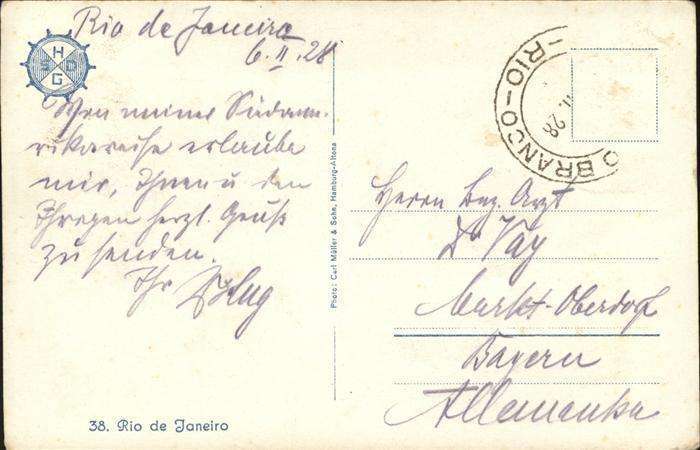 Rio de Janeiro
6.II.28
H
S D
G
Von meiner Südame-
rikareise erlaube
mir, Ihnen u. den
Ihrigen herzl. Gruß
zu senden.
Ihr
Hug
Photo: Carl Müller & Sohn, Hamburg-Altona
38. Rio de Janeiro
RIO-O BRANCO-O
II. 28
Herrn Bez. Arzt
Dr Vay
Markt-Oberdorf
Bayern